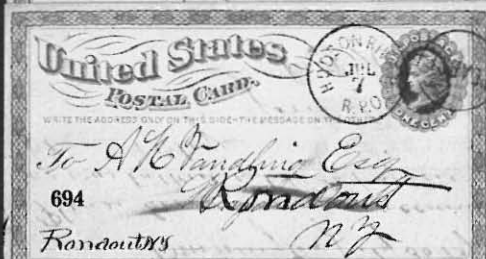 United States
POSTAL CARD.
WRITE THE ADDRESS ONLY ON THIS SIDE - THE MESSAGE ON THE OTHER
HUDSON RIV
JUL
7
R.P.O.
ONE CENT
To A K Vandling Esq
694
Rondout
Rondout NY
N Y